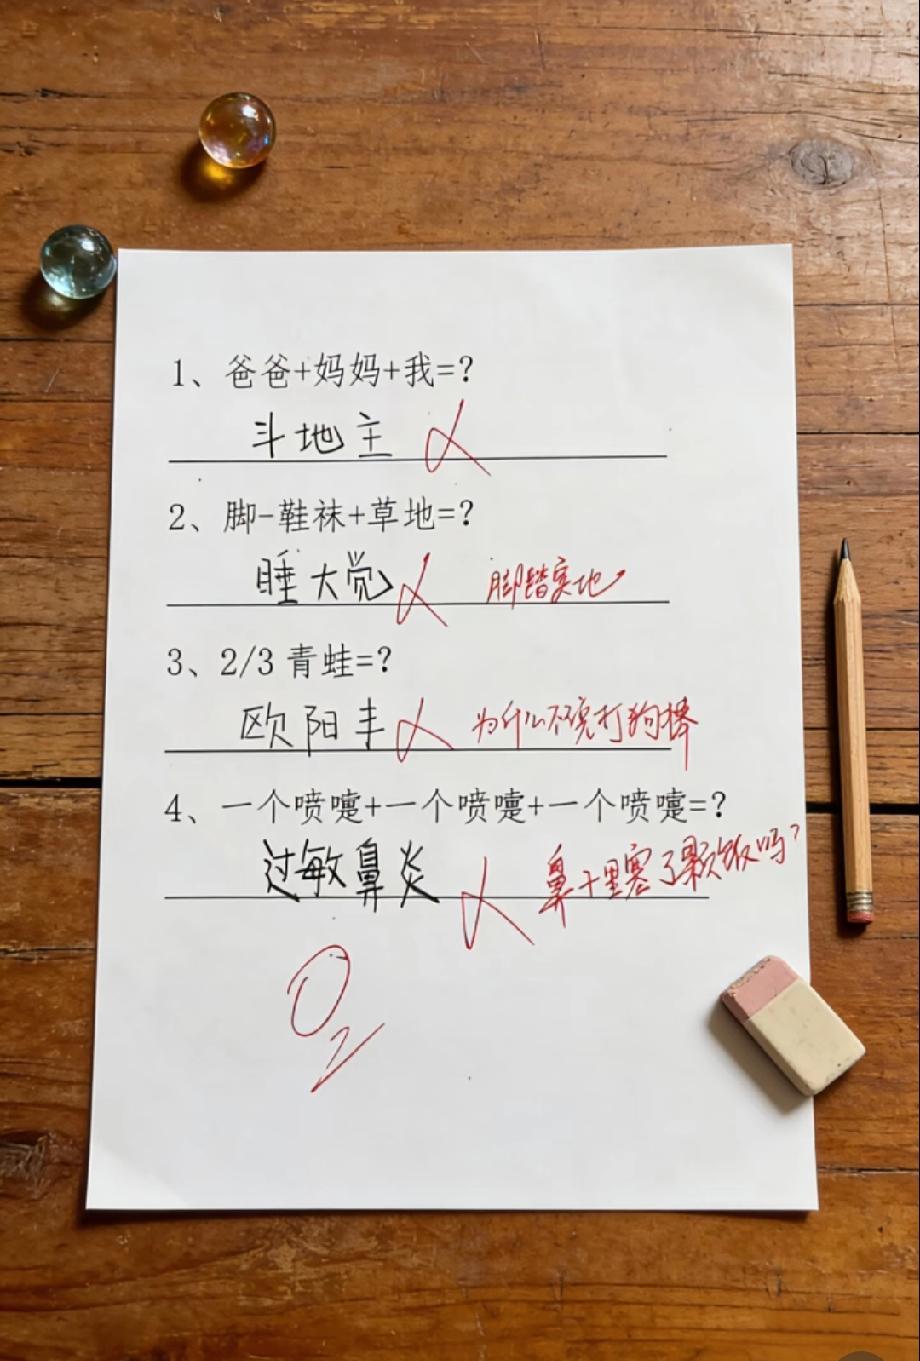 1、爸爸+妈妈+我=?
斗地主
2、脚-鞋袜+草地=?
睡大觉 脚踏实地
3、2/3 青蛙=?
欧阳丰 为什么不完打狗棒
4、一个喷嚏+一个喷嚏+一个喷嚏=?
过敏鼻炎 鼻子里塞了颗饭吗?
0
2